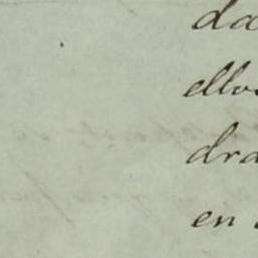 da
ellos
dra
en